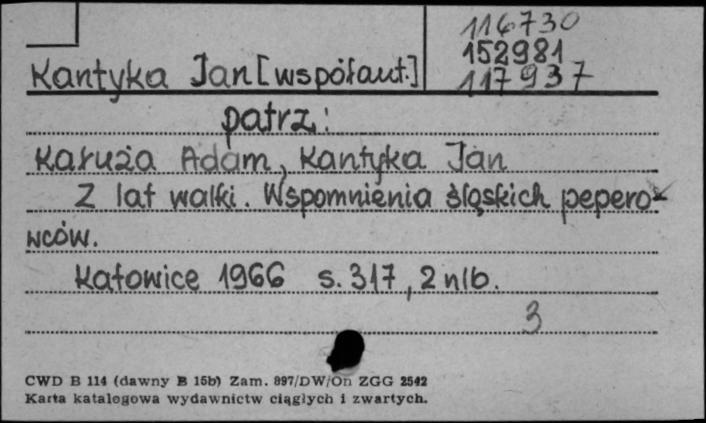 116730
152981
117937
Kantyka Jan [współaut.]
patrz:
Kałuża Adam, Kantyka Jan
Z lat walki. Wspomnienia śląskich pepero-
wców.
Katowice 1966 s. 317, 2 nlb.
3
CWD B 114 (dawny B 15b) Zam. 897/DW/On ZGG 2542
Karta katalogowa wydawnictw ciągłych i zwartych.